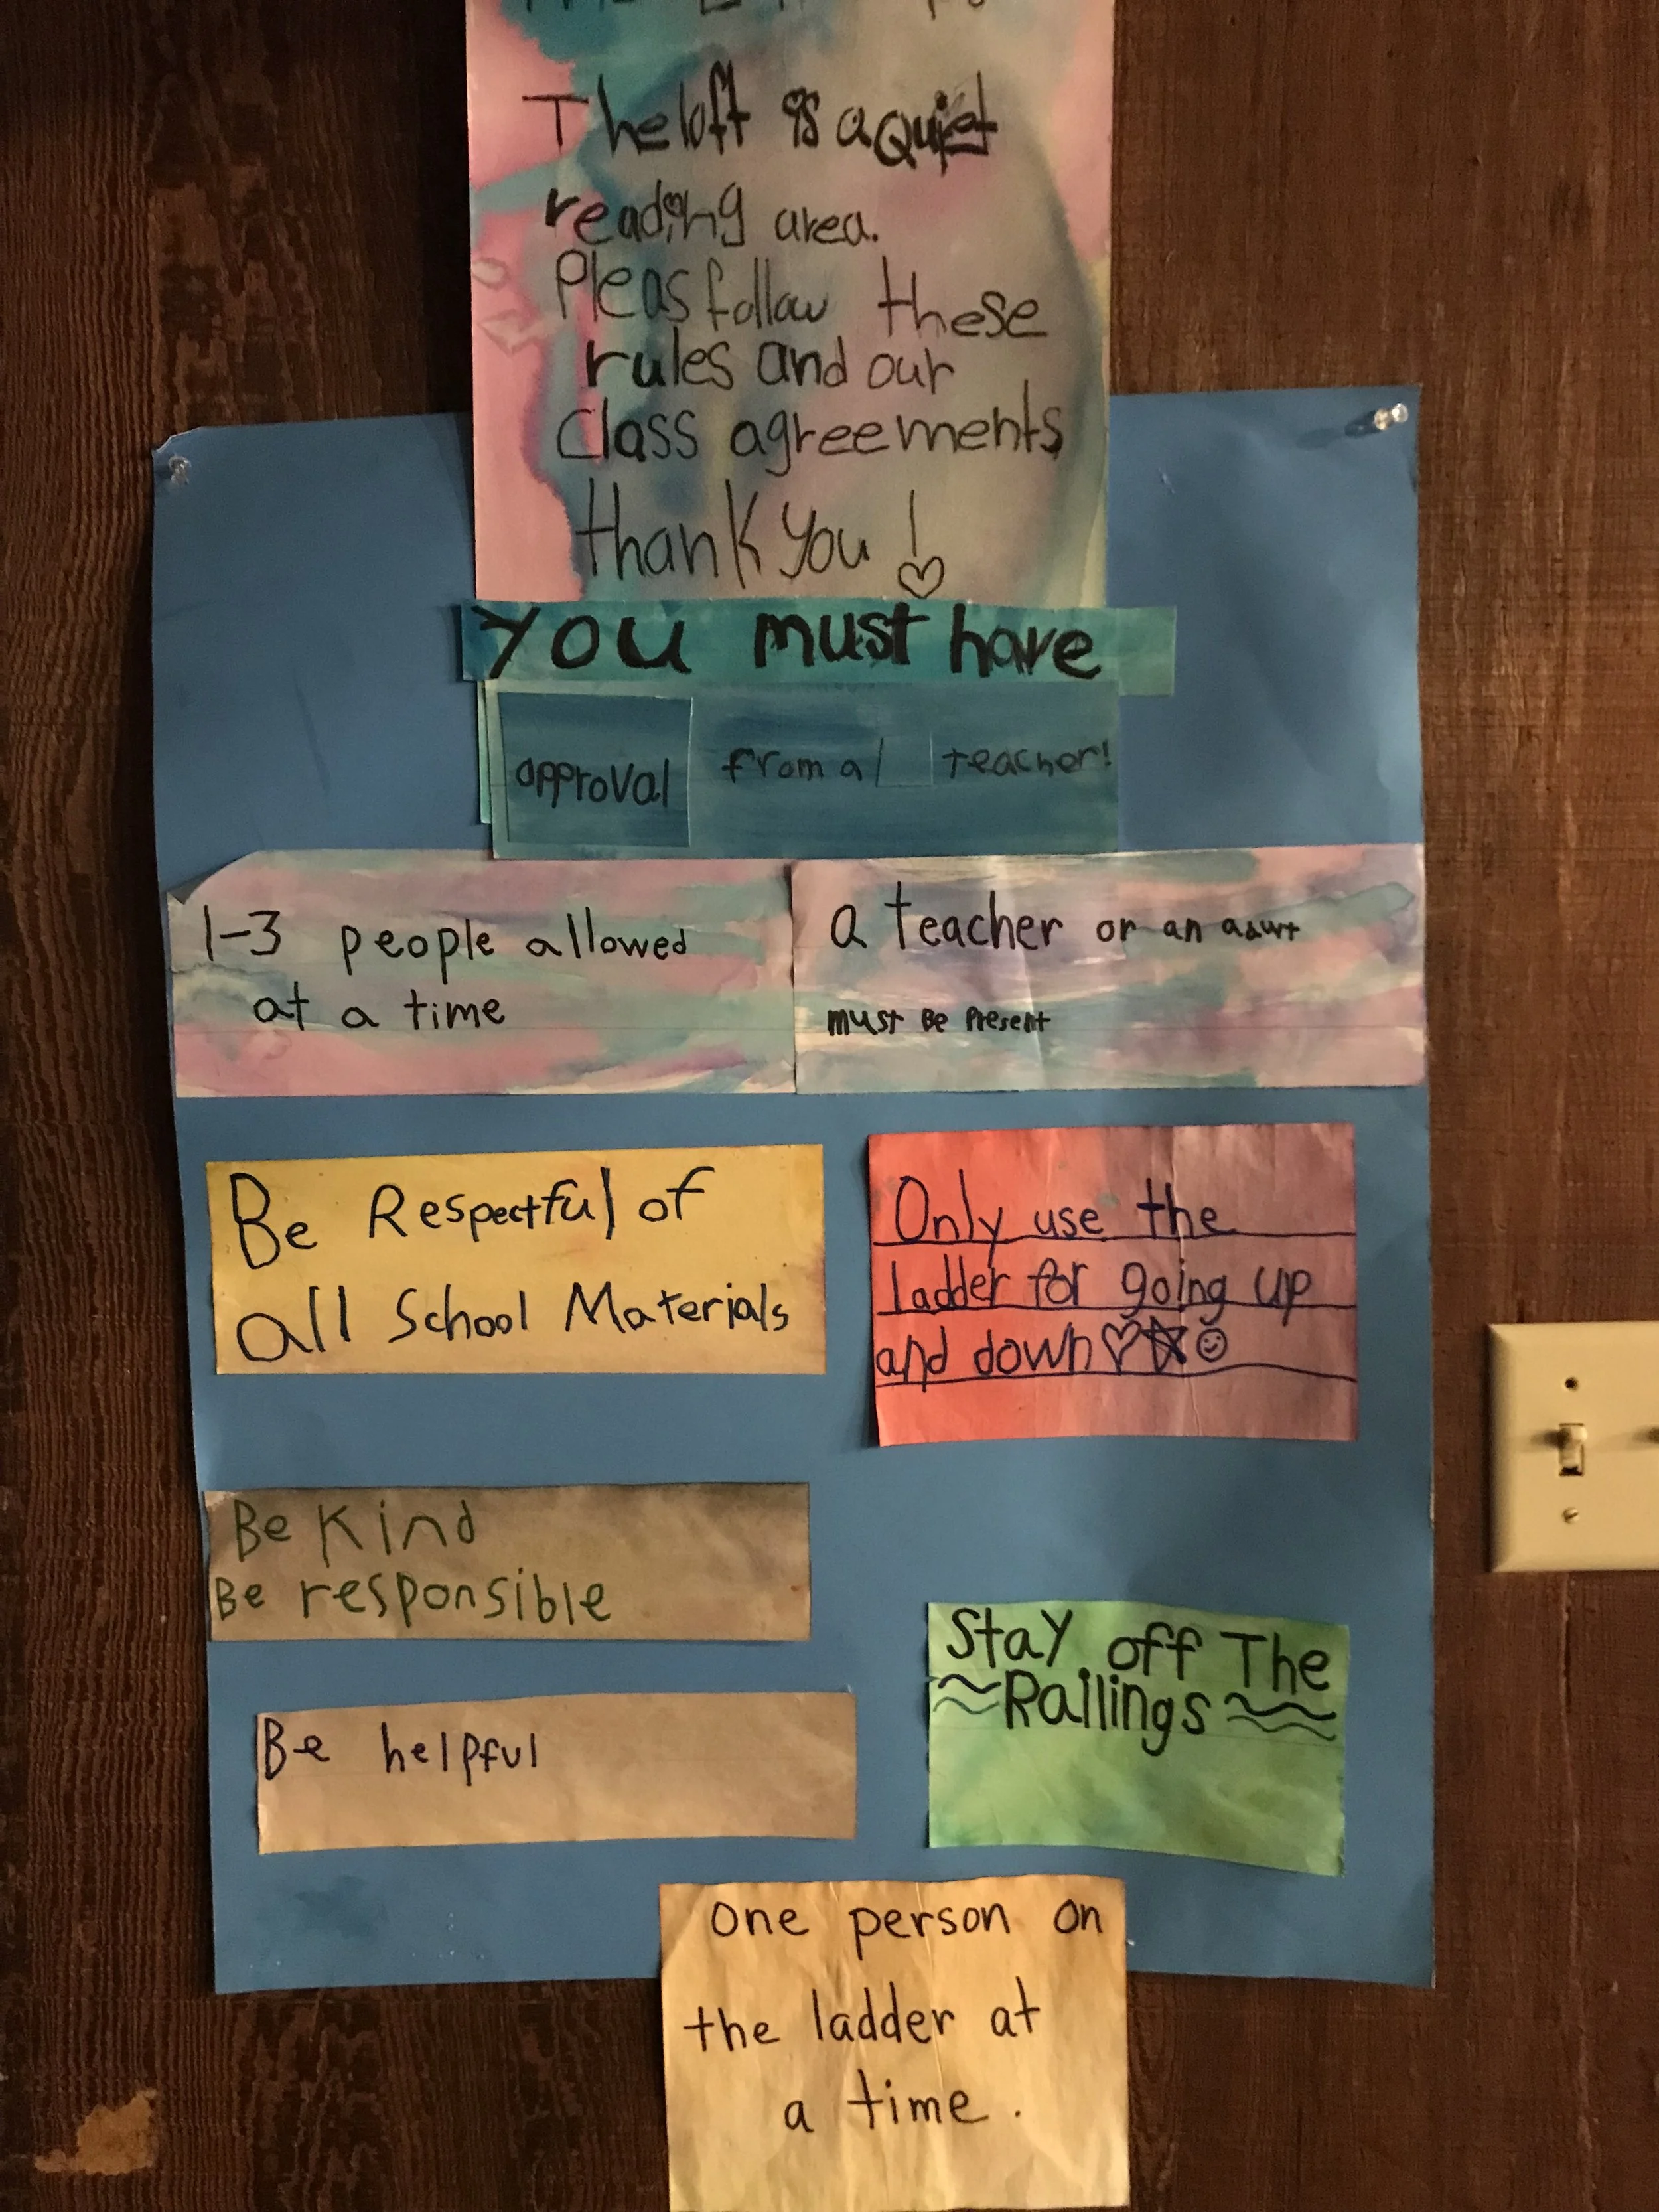 The loft is a Quiet
reading area.
Pleas follow these
rules and our
class agreements
thank you!
you must have
approval from a teacher!
1-3 people allowed
at a time
a teacher or an adult
must Be Present
Be Respectful of
all School Materials
Only use the
ladder for going up
and down
Be Kind
Be responsible
Stay off The
Railings
Be helpful
One person on
the ladder at
a time.